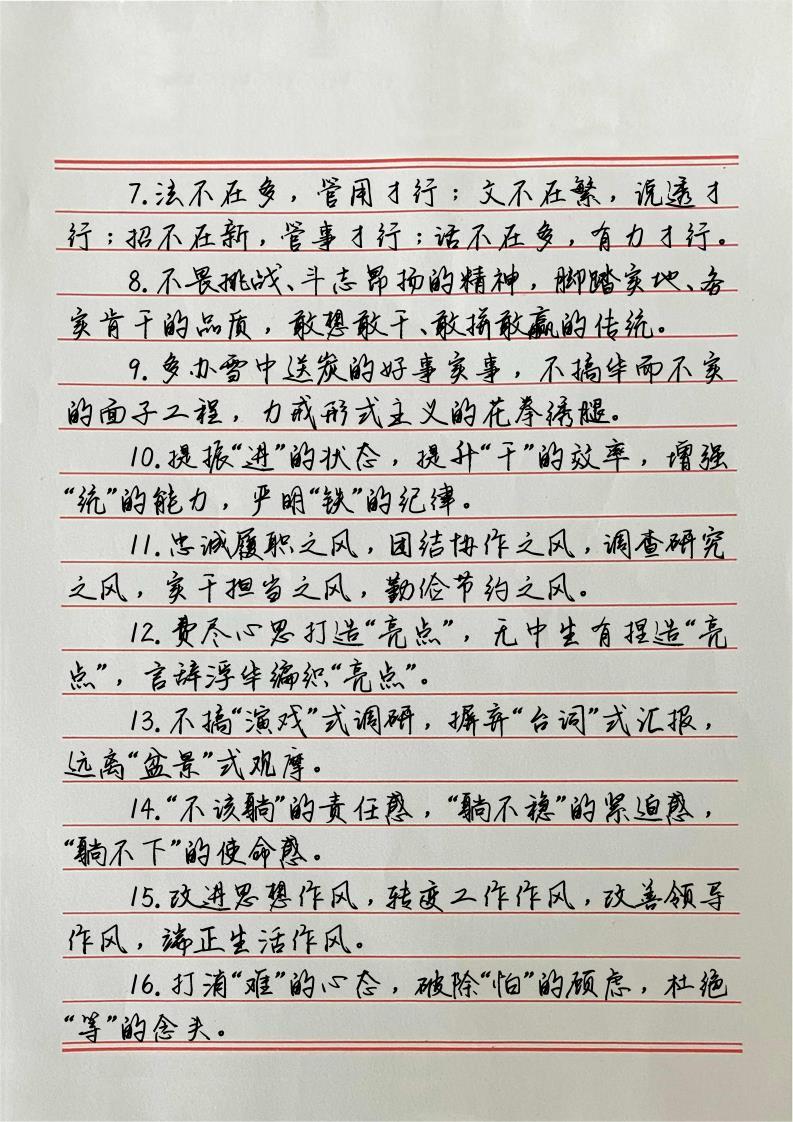 7.法不在多，管用才行；文不在繁，说透才
行；招不在新，管事才行；话不在多，有力才行。
8.不畏挑战、斗志昂扬的精神，脚踏实地、各
实肯干的品质，敢想敢干、敢拼敢赢的传统。
9.多办雪中送炭的好事实事，不搞华而不实
的面子工程，力戒形式主义的花拳绣腿。
10.提振“进”的状态，提升“干”的效率，增强
“统”的能力，严明“铁”的纪律。
11.忠诚履职之风，团结协作之风，调查研究
之风，实干担当之风，勤俭节约之风。
12.费尽心思打造“亮点”，无中生有捏造“亮
点”，言辞浮华编织“亮点”。
13.不搞“演戏”式调研，摒弃“台词”式汇报，
远离“盆景”式观摩。
14.“不该躺”的责任感，“躺不稳”的紧迫感，
“躺不下”的使命感。
15.改进思想作风，转变工作作风，改善领导
作风，端正生活作风。
16.打消“难”的心态，破除“怕”的顾虑，杜绝
“等”的念头。